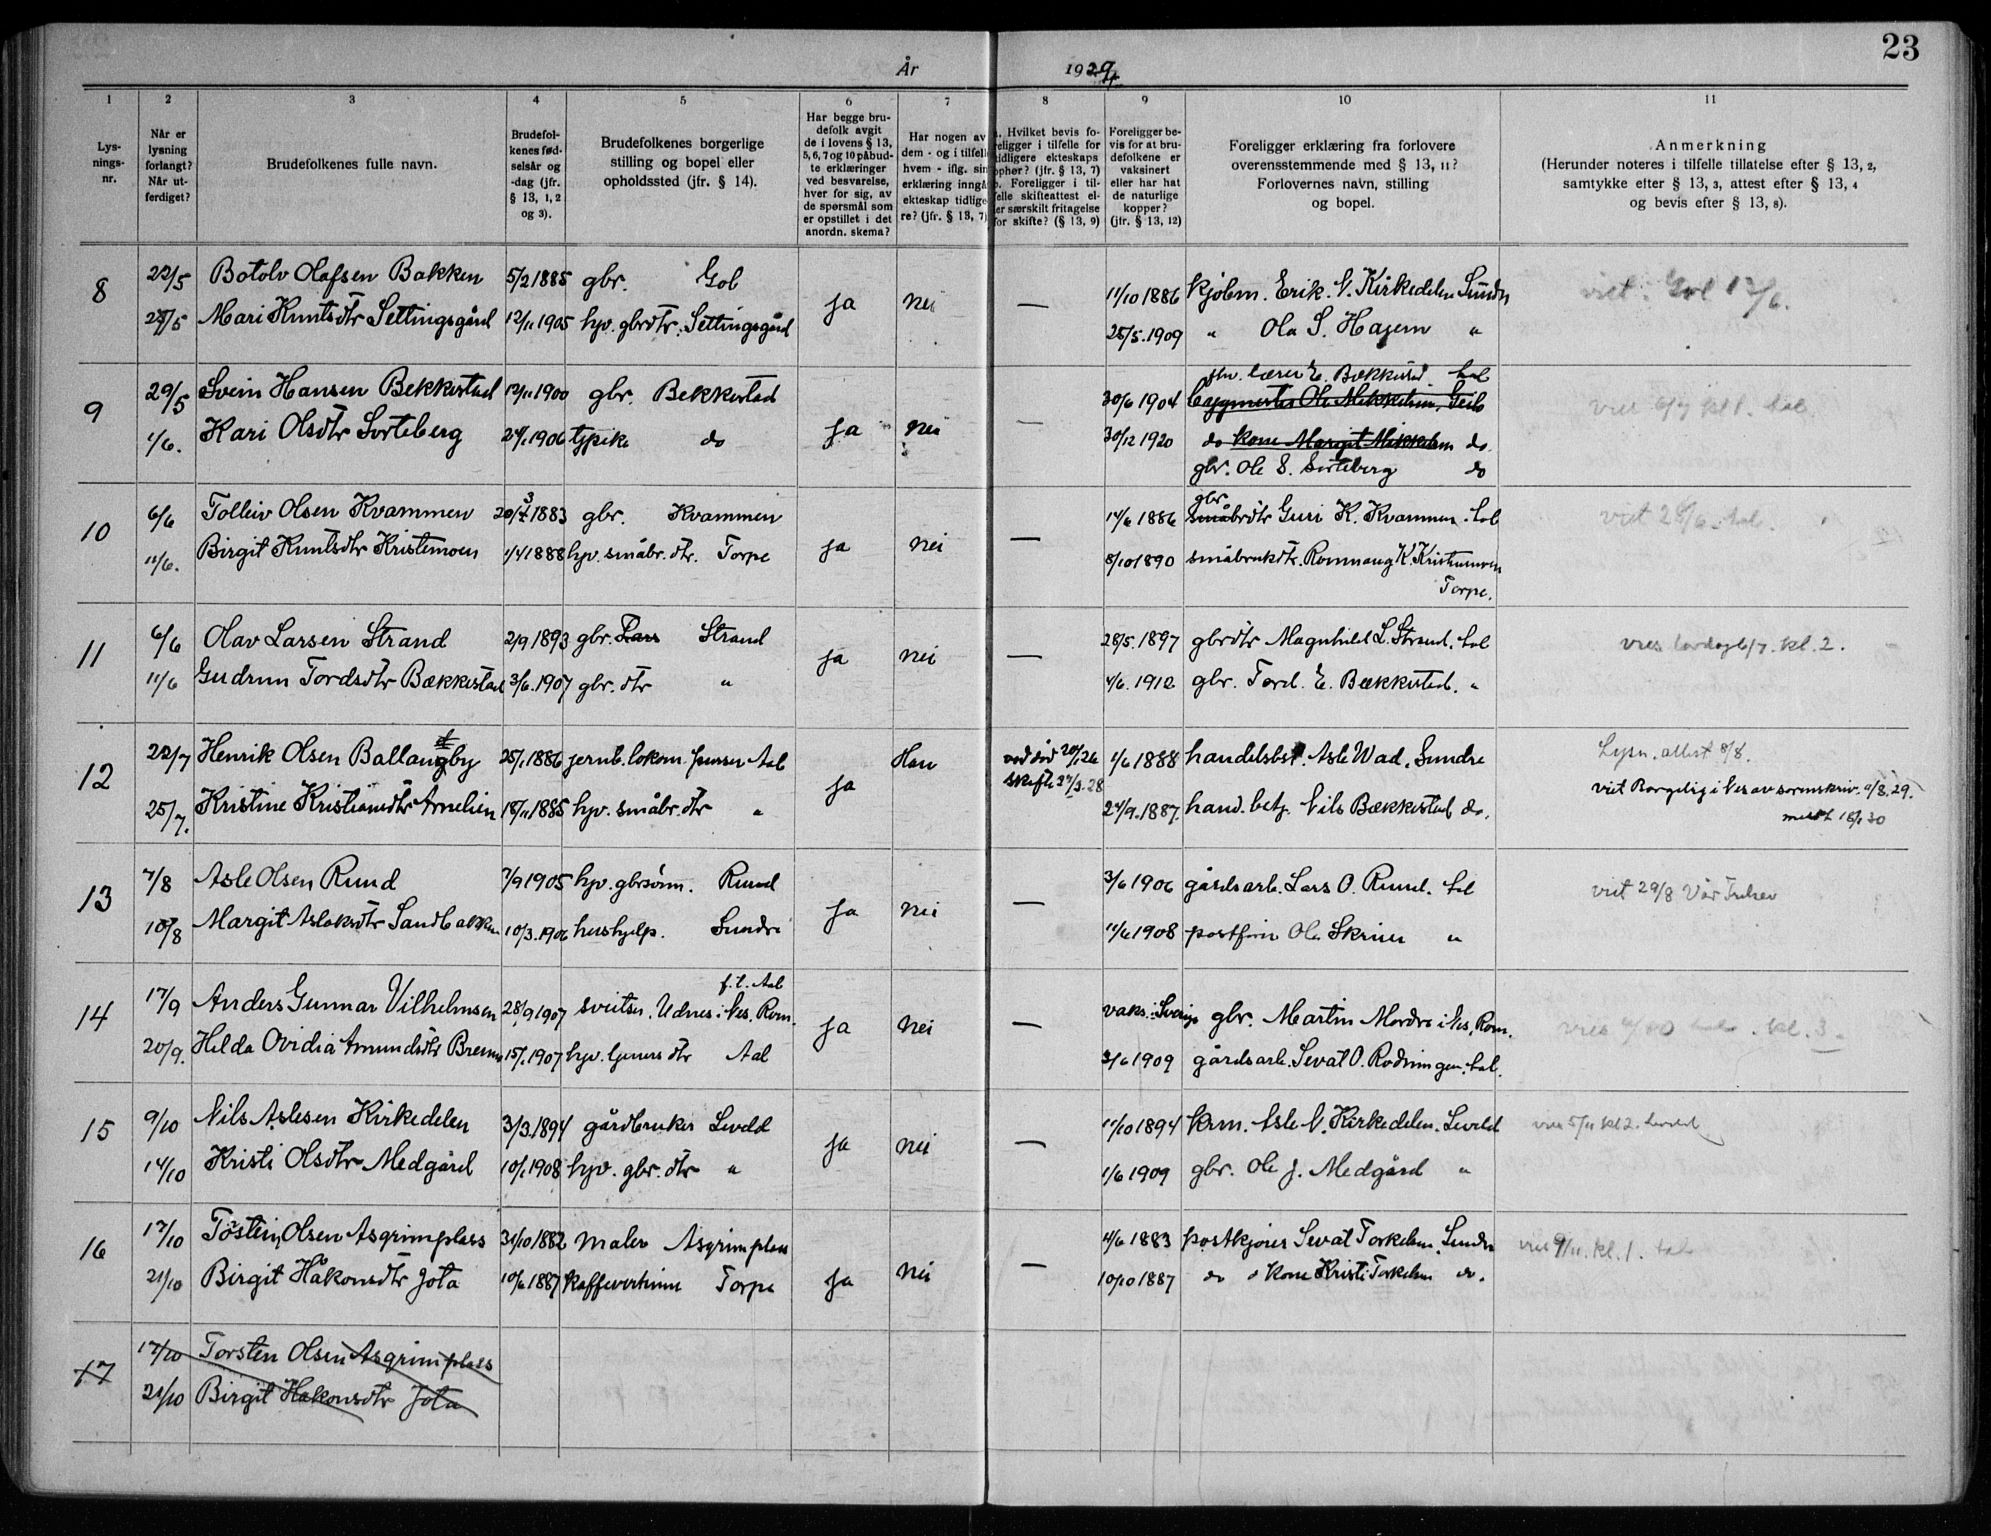 23
År 1929
1 2 3 4 5 6 7 8 9 10 11
Lys-
nings-
nr.
Når er
lysning
forlangt?
Når ut-
ferdiget?
Brudefolkenes fulle navn.
Brudefol-
kenes fød-
selsår og
-dag (jfr.
§ 13, 1, 2
og 3).
Brudefolkenes borgerlige
stilling og bopel eller
opholdssted (jfr. § 14).
Har begge bru-
defolk avgit
de i lovens § 13,
5, 6, 7 og 10 påbud-
te erklæringer
ved besvarelse,
hver for sig, av
de spørsmål som
er opstillet i det
anordn. skema?
Har nogen av
dem - og i tilfelle
hvem - iflg. sin
erklæring inngå
ekteskap tidlige
re? (jfr. § 13, 7)
. Hvilket bevis fo-
religger i tilfelle for
tidligere ekteskaps
ophør? (jfr. § 13, 7)
. Foreligger i til-
felle skifteattest el-
er særskilt fritagelse
for skifte? (§ 13, 9)
Foreligger be-
vis for at bru-
defolkene er
vaksinert
eller har hat
de naturlige
kopper?
(jfr. § 13, 12)
Foreligger erklæring fra forlovere
overensstemmende med § 13, 11?
Forlovernes navn, stilling
og bopel.
Anmerkning
(Herunder noteres i tilfelle tillatelse efter § 13, 2,
samtykke efter § 13, 3, attest efter § 13, 4
og bevis efter § 13, 8).
8 22/5 Botolv Olafsen Bakken 5/2 1885 gbr. Gol ja nei — 11/10 1886 kjøbm. Erik N. Kirkedelen Sundre viet i Gol 12/6.
28/5 Mari Knutsdtr Settingsgård 12/11 1905 hjv. gbrdtr. Settingsgård 25/5. 1909 " Ola S. Hagen "
9 29/5 Svein Hansen Bekkestad 12/11 1900 gbr. Bekkestad ja nei — lærer E. Bækkestad. Aal
30/6 1904 Ole Mikkelsen, Geilo vies 6/7 kl 1. Aal.
1/6. Kari Olsdtr Sorteberg 1906 do 30/12 1920 do kone Margit Mikkelsen do
gbr. Ole S. Sorteberg do
10 6/6 Tolleiv Olsen Kvammen 20/3 1883 gbr. Kvammen ja nei — gbr
14/6 1886 smådtr Guri K. Kvammen. Aal viet 28/6. Aal.
11/6. Birgit Knutsdtr Kristenmoen 1/4 1888 hjv. småbr. dtr. Torpe 8/10 1890 småbrukdtr. Rønnaug K. Kristenmoen
Torpe.
11 6/6 Olav Larsen Strand 2/9 1893 gbr. Lars Strand ja nei — 28/5. 1897 gbrdtr Magnhild L. Strand. Aal vies lørdag 6/7. kl. 2.
11/6 Gudrun Tordsdtr Bækkestad 3/6. 1907 gbr. dtr " 4/6. 1912 gbr. Tord. E. Bækkestad. "
12 22/7 Henrik Olsen Ballangby 25/1 1886 jernb. lokom. Aal ja Han ved død 20/1 26 4/6 1888 handelsbst. Asle Wad, Sundre Lysn. attest 8/8.
skifte 27/3. 28
25/7. Kristine Kristiansdtr Arnelien 18/11 1885 hjv. småbr. dtr " 24/9. 1887. hand. betj. Nils Bækkestad do. viet Borgelig i Nes av sorenskriv. 9/8. 29.
13 7/8 Asle Olsen Rund 7/9 1905 hjv. gbrsønn. Rund ja nei — 3/6 1906 gårdsarb. Lars O. Rund. Aal viet 29/8 Vår Frelser
10/8 Margit Aslaksdtr Sandbakken 10/3. 1906 hushjelp. Sundre 11/6 1908 postfører Ole Skrien "
14 17/9 Anders Gunnar Vilhelmsen 28/9 1907 f. t. Aal
sveitser. Udnes i Nes. Rom. ja nei — vaks. i Sverige gbr. Martin Mordre i Nes, Rom.
20/9. Hilda Ovidia Amundsdtr 15/1. 1907 hjv. dtr Aal 3/6 1909 gårdsarb. Sevat O. Rodningen. Aal.
15 9/10 Nils Aslesen Kirkedelen 3/3. 1894 gårdbruker Leveld ja nei — 11/10 1894 krm. Asle N. Kirkedelen. Leveld vies 5/11 kl 2. Leveld
14/10 Kristi Olsdtr Medgård 10/1 1908 hjv. gbr. dtr " 1/6 1909 gbr. Ole J. Medgård "
16 17/10 Tosten Olsen Asgrimplass 31/10 1882 maler Asgrimplass ja nei — 4/6 1883 postkjører Sevat Torkelsen. Sundre vies 9/11. kl. 1. Aal
21/10 Birgit Håkonsdtr Jota 10/6 1887 kaffevertinne Torpe 10/10 1887 do kone Kristi Torkelsen do.
17 17/10 Torsten Olsen Asgrimplass
21/10 Birgit Hakonsdtr Jota